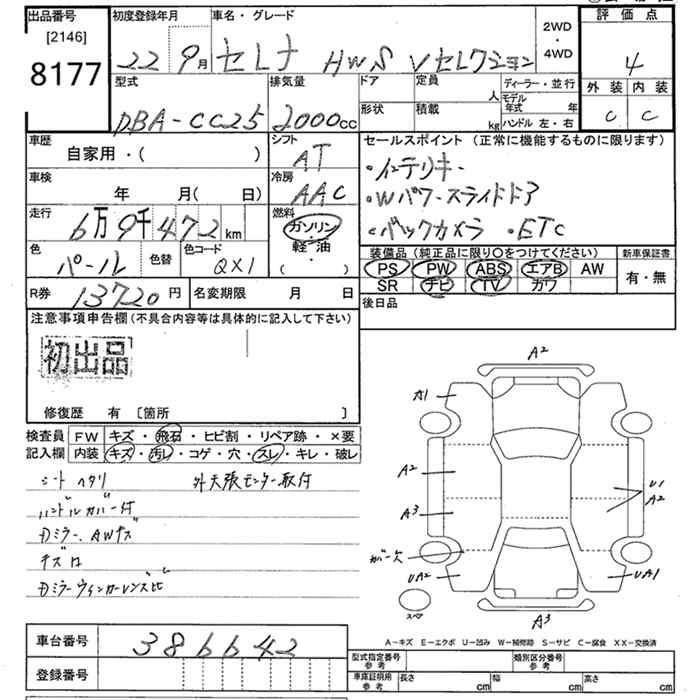 出品番号 初度登録年月 車名・グレード 2WD・4WD 評価点
[2146]
8177
22 9月 セレナ HWS Vセレクション 4
型式 排気量 ドア 定員 人 ディーラー・並行 外装 内装
DBA-CC25 2000cc 形状 積載 kg モデル年式 年 C C
ハンドル 左・右
車歴 シフト セールスポイント (正常に機能するものに限ります)
自家用・( ) AT ・インテリキー
車検 冷房
年 月( 日) AAC ・Wパワースライドドア
走行 燃料
6万9千472km ガソリン・軽油・( ) ・バックカメラ ・ETC
色 色替 色コード 装備品 (純正品に限り○をつけてください) 新車保証書
パール QX1 PS PW ABS エアB AW 有・無
SR ナビ TV カワ
R券 13720円 名変期限 月 日 後日品
注意事項申告欄(不具合内容等は具体的に記入して下さい)
初出品
修復歴 有 [箇所 ]
検査員 FW キズ・飛石・ヒビ割・リペア跡・×要
記入欄 内装 キズ・汚レ・コゲ・穴・スレ・キレ・破レ
シートヘタリ 外天張モニター取付
ハンドルカバー付
Dミラー、AWキズ
キズ口
Dミラーウィンカーレンズヒビ
A2
A1
A2
U1
A2
A3
ガー欠
UA2
UA1
スペア
A3
A-キズ E-エクボ U-凹み W-補修跡 S-サビ C-腐食 XX-交換済
車台番号 386642
登録番号
型式指定番号 参考 類別区分番号 参考
車庫証明用 参考 長さ cm 幅 cm 高さ cm